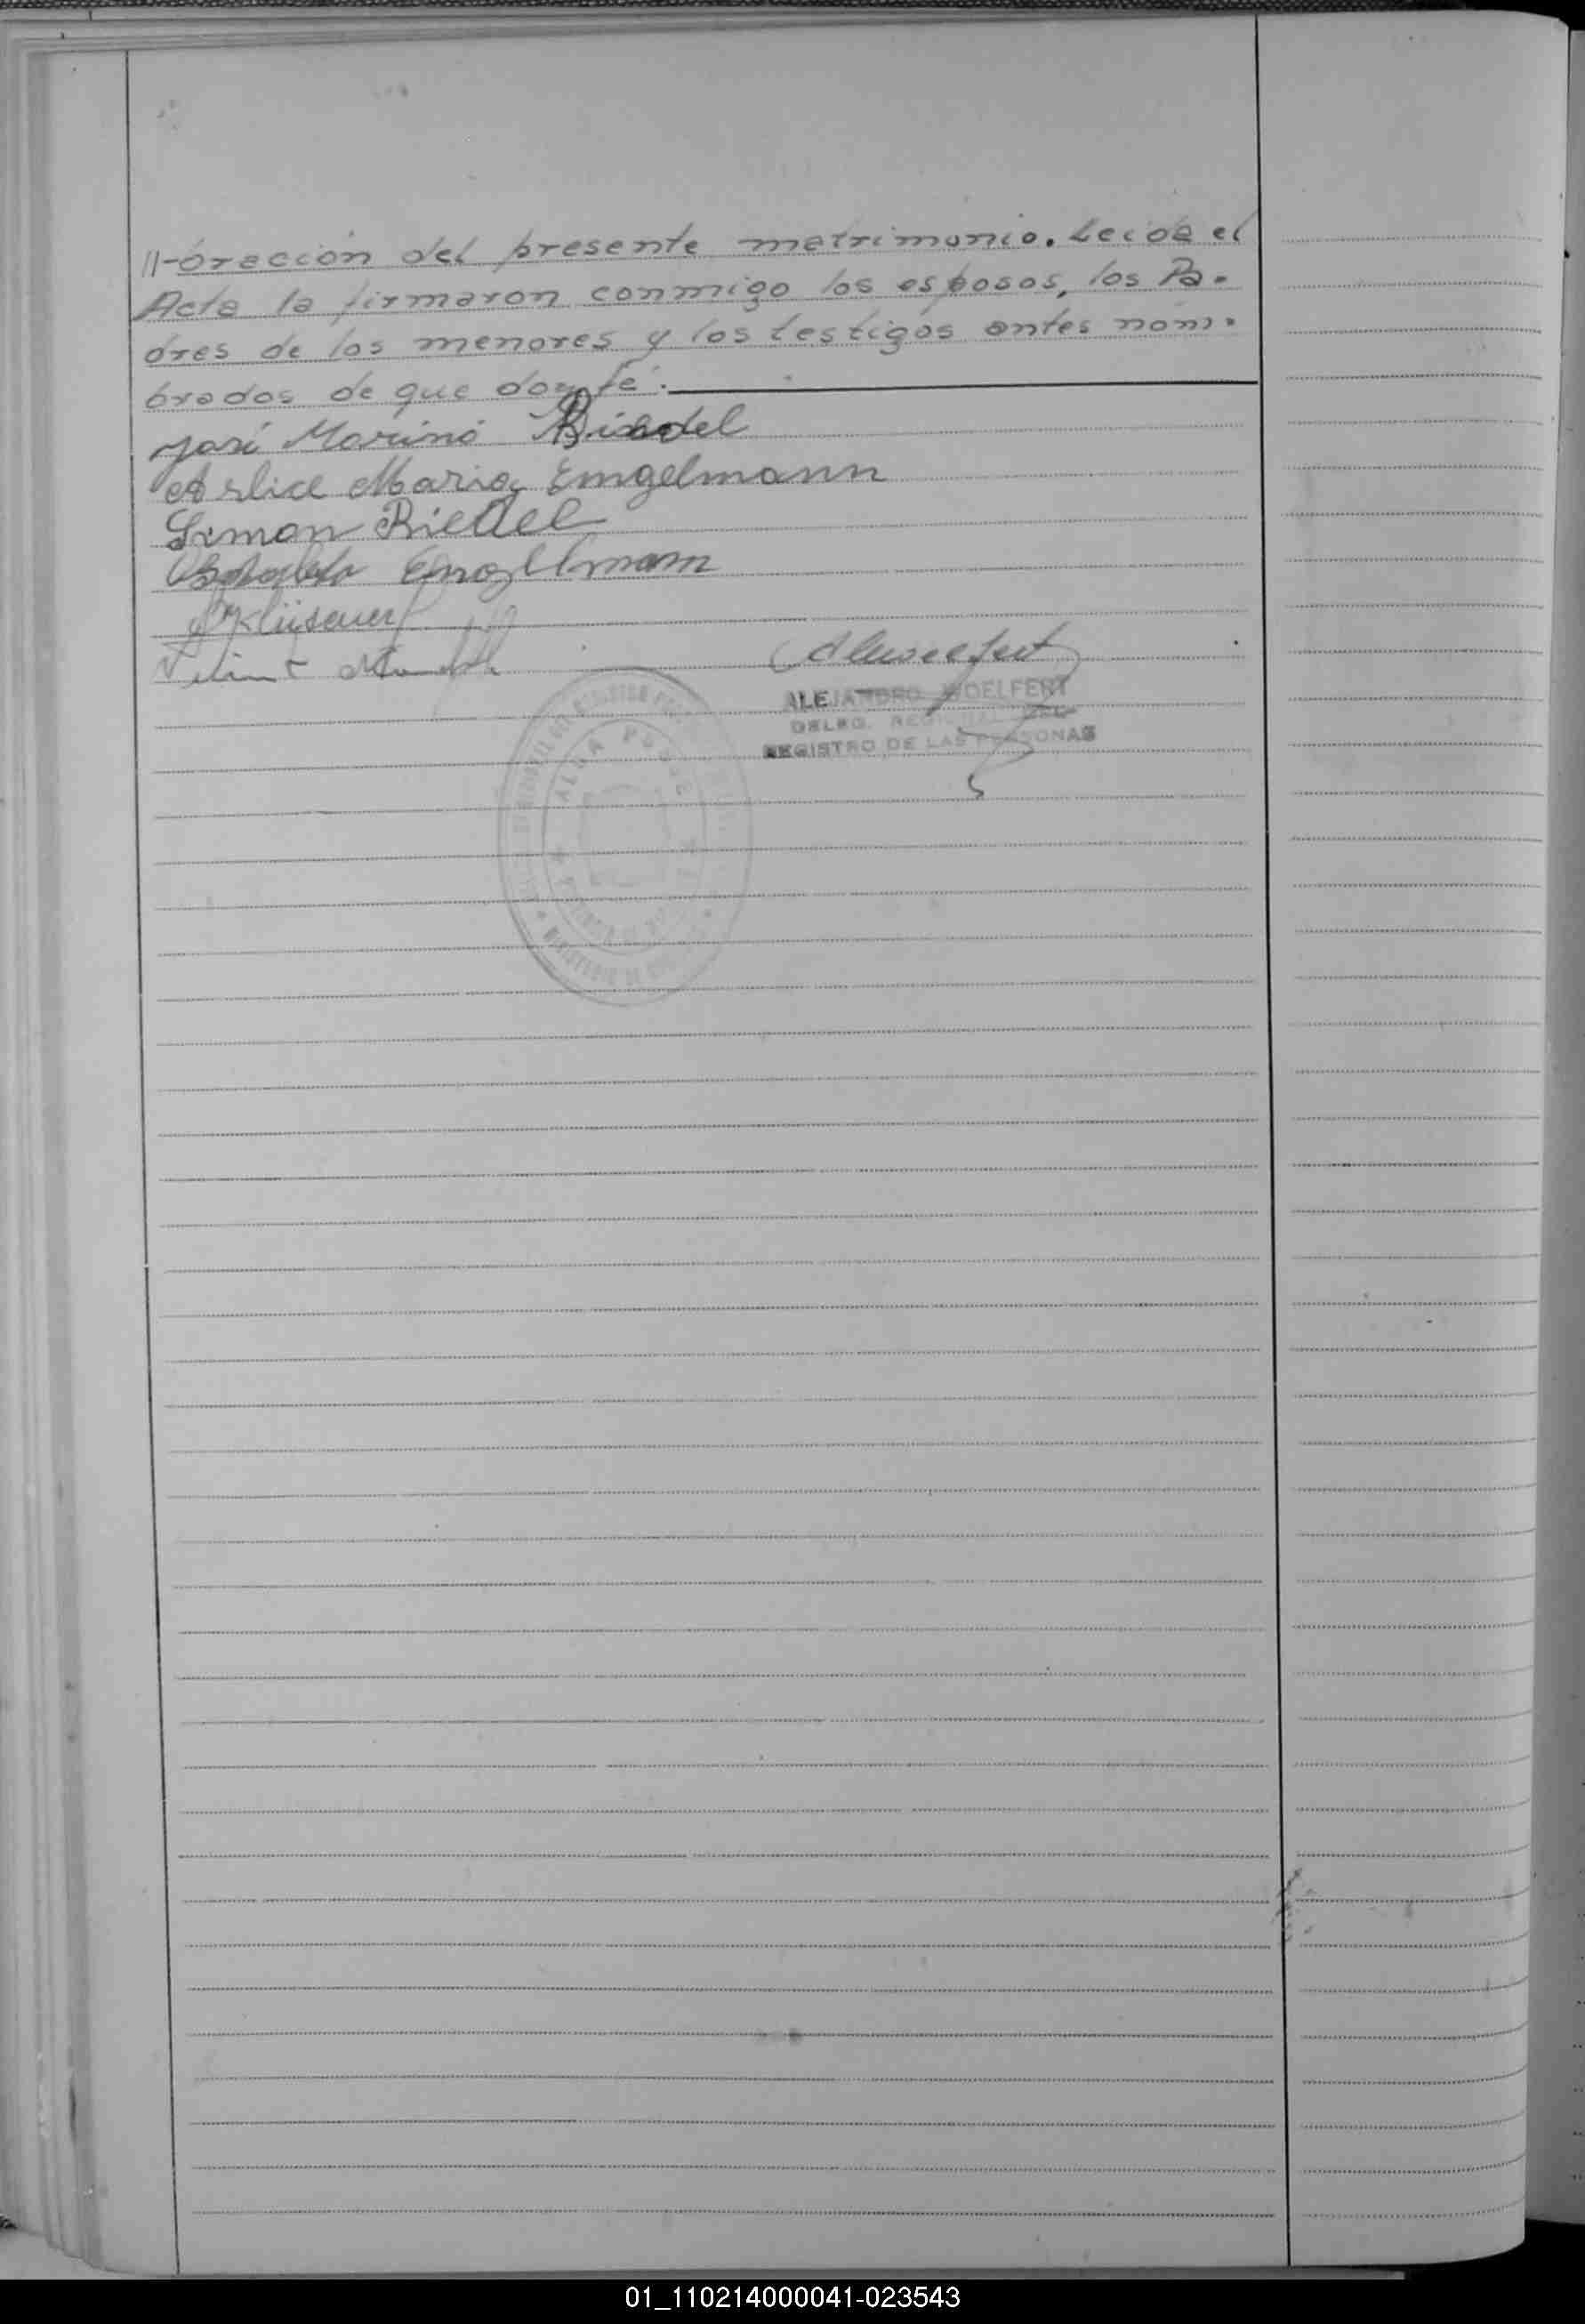 11-bración del presente matrimonio. Leida el
Acta la firmaron conmigo los esposos, los Pa-
dres de los menores y los testigos antes nom-
brados de que doy fé.
José Marino Riedel
Arlice Maria Engelmann
Simon Riedel
Engelmann
Klüsener
ALEJANDRO WOELFERT
DELEG. REGIONAL DEL
REGISTRO DE LAS PERSONAS
ALBA POSSE
01_110214000041-023543